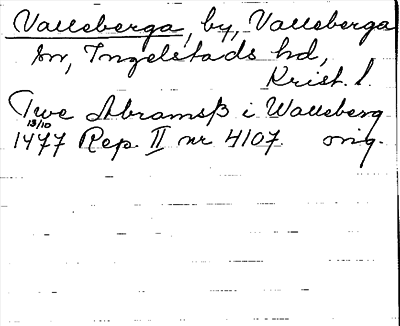 Valleberga, by, Valleberga
sn, Ingelstads hd,
Krist. l.
Twe Abramsß i Walleberg
13/10
1477 Rep. II nr 4107. orig.